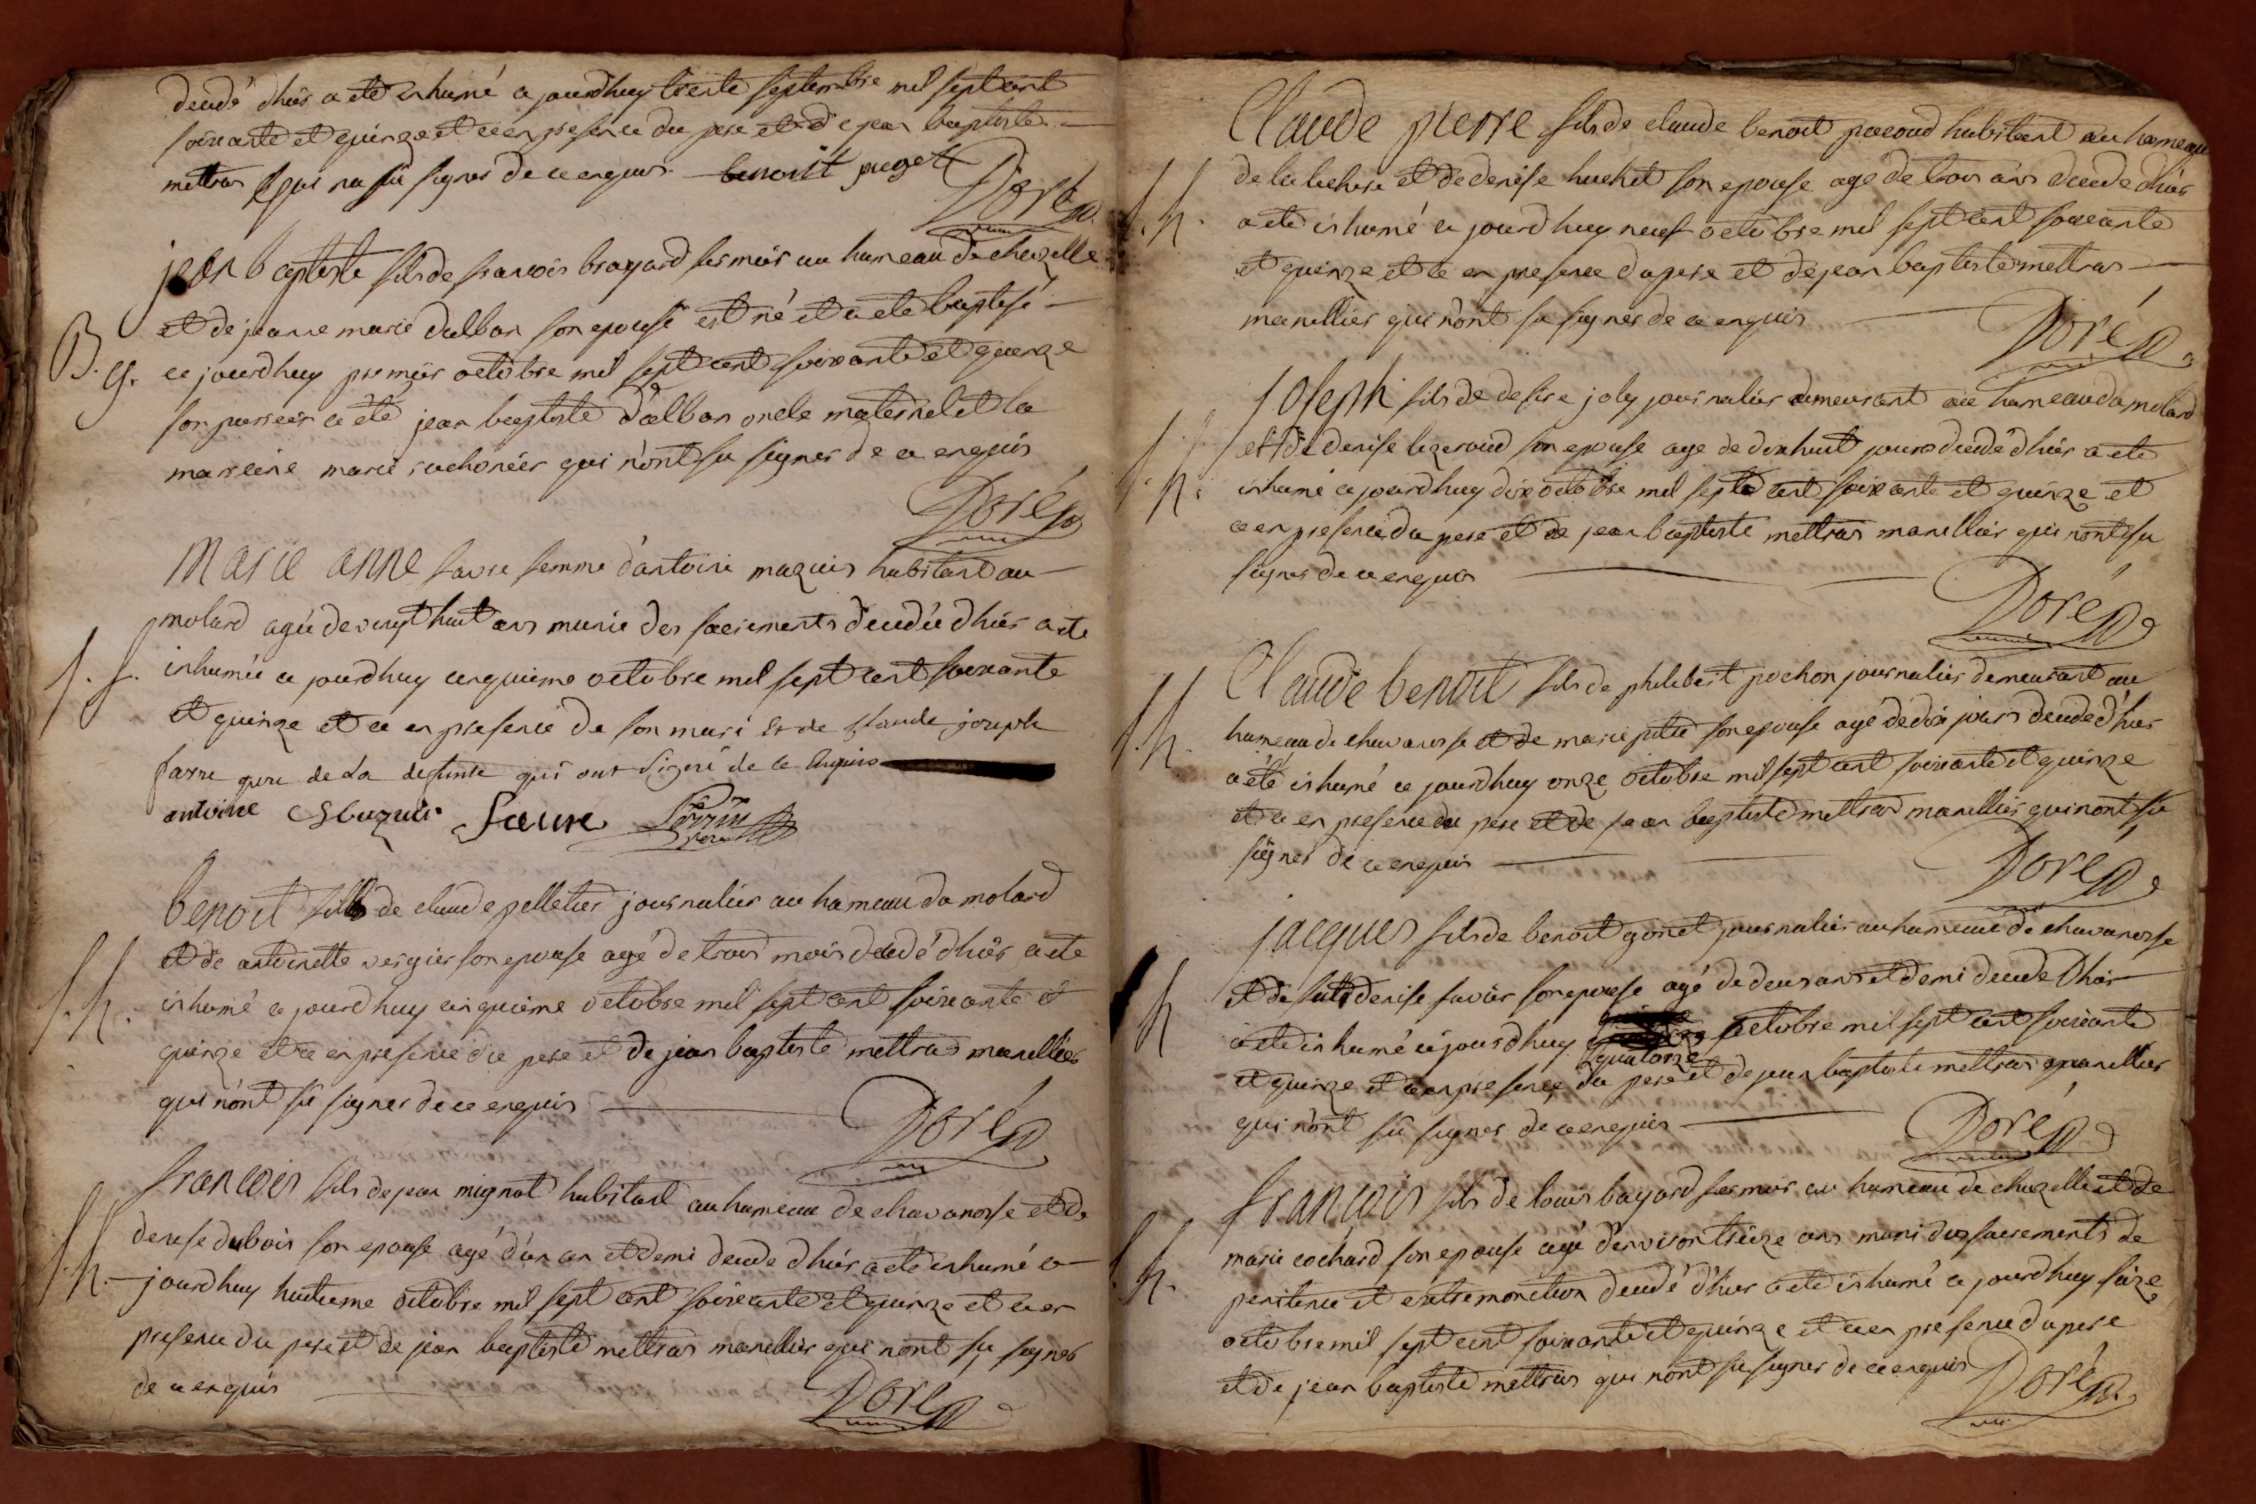 decedé d'hier a eté inhumé ce jourdhuy trente septembre mil sept cent
soixante et quinze et ce en presence du pere et de jean baptiste
mettras qui na sû signer de ce enquis benoit puget
Doré
jean baptiste fils de francois brayard fermier au hameau de chezelle
et de jeanne marie dalban son epouse est né et a eté baptisé
B. G. ce jourdhuy premier octobre mil sept cent soixante et quinze
son parrein a été jean baptiste dalban oncle maternel et la
marreine marie rachonier qui n'ont su signer de ce enquis
Doré
Marie anne favre femme d'antoine mazuis habitant au
molard agée de vingt huit ans munie des sacrements decedée d'hier a ete
S. f. inhumée ce jourdhuy cinquieme octobre mil sept cent soixante
et quinze et ce en presence de son mari et de claude joseph
favre pere de la defunte qui ont signé de ce enquis
antoine Mazuis favre Perrin
benoit fils de claude pelletier journalier au hameau du molard
et de antoinette vergier son epouse agé de trois mois decedé d'hier a ete
S. h. inhumé ce jourdhuy cinquieme octobre mil sept cent soixante et
quinze et ce en presence du pere et de jean baptiste mettras marellier
qui n'ont sû signer de ce enquis
Doré
francois fils de jean mignot habitant au hameau de chavanosse et de
denise dubois son epouse agé d'un an et demi decede d'hier a ete inhumé ce
S. h. jourdhuy huitieme octobre mil sept cent soixante et quinze et ce en
presence du pere et de jean baptiste mettras marellier qui nont su signer
de ce enquis
Doré
Claude pierre fils de claude benoit pacoud habitant au hameau
de la lechere et de denise huchet son epouse agé de trois ans decede d'hier
S. h. a ete inhumé ce jourdhuy neuf octobre mil sept cent soixante
et quinze et ce en presence du pere et de jean baptiste mettras
marellier qui n'ont su signer de ce enquis
Doré
Joseph fils de desire joly journalier demeurant au hameau du molard
et de denise lizeroud son epouse age de dix huit jours decedé d'hier a ete
S. h. inhumé ce jourdhuy dix octobre mil sept cent soixante et quinze et
ce en presence du pere et de jean baptiste mettras marellier qui n'ont su
signer de ce enquis
Doré
Claude benoit fils de philibert pochon journalier demeurant au
hameau de chavanosse et de marie putet son epouse agé de dix jours decede d'hier
S. h. a été inhumé ce jourdhuy onze octobre mil sept cent soixante et quinze
et ce en presence du pere et de jean baptiste mettras marellier qui nont su
signer de ce enquis
Doré
jacques fils de benoit gonet journalier au hameau de chavanosse
et de denise favier son epouse agé de deux ans et demi decede d'hier
h a ete inhumé ce jourdhuy quatorze octobre mil sept cent soixante
et quinze et ce en presence du pere et de jean baptiste mettras marellier
qui n'ont sû signer de ce enquis
Doré
francois fils de louis bayard fermier au hameau de chezelle et de
marie cochard son epouse agé d'environ treize ans muni des sacrements de
S. h. penitence et extremonction decedé d'hier a ete inhumé ce jourdhuy seize
octobre mil sept cent soixante et quinze et ce en presence du pere
et de jean baptiste mettras qui n'ont su signer de ce enquis
Doré